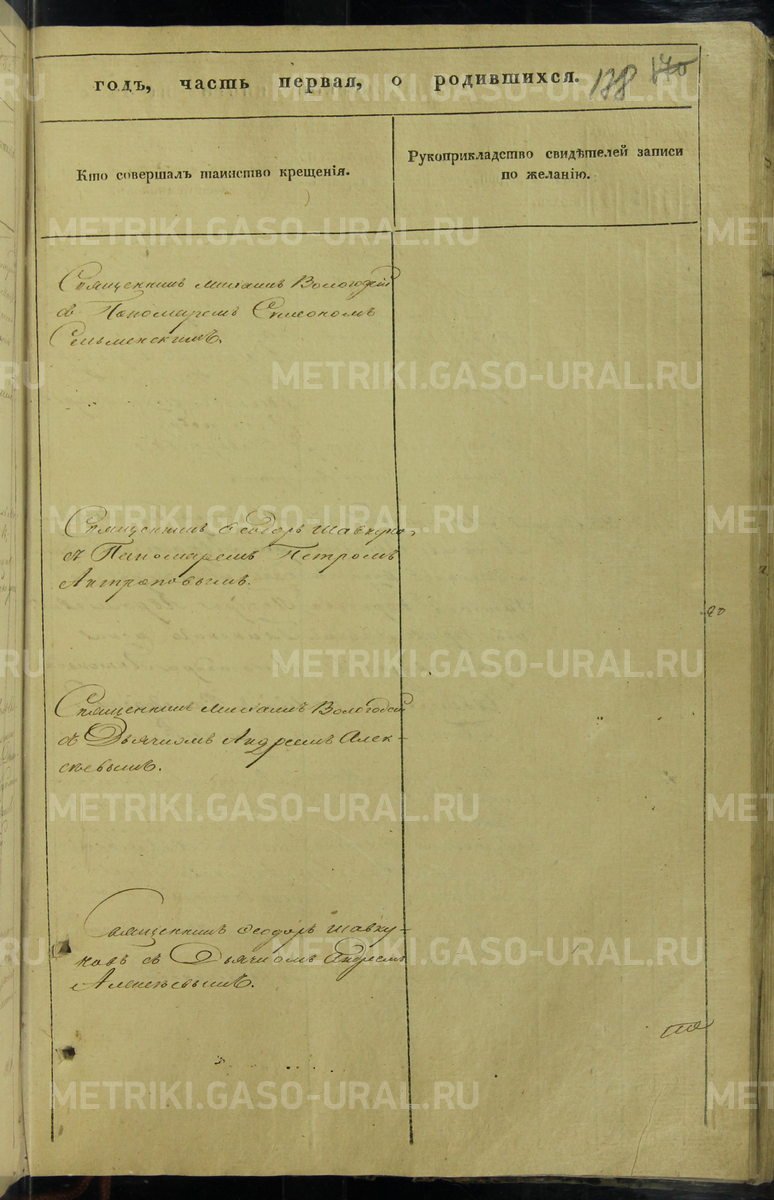 годъ, часть первая, о родившихся.
138 170
Кто совершалъ таинство крещенія.
Рукоприкладство свидѣтелей записи
по желанію.
Священникъ Михаилъ Вологодскій
съ Пономаремъ Симеономъ
Сельменскимъ.
Священникъ Феодоръ Шавкуно-
съ Пономаремъ Петромъ
Антроповымъ.
Священникъ Михаилъ Вологодскій
съ Дьячкомъ Андреемъ Алек-
сѣевымъ.
Священникъ Феодоръ Шавку-
новъ съ Дьячкомъ Андреемъ
Алексѣевымъ.
METRIKI.GASO-URAL.RU